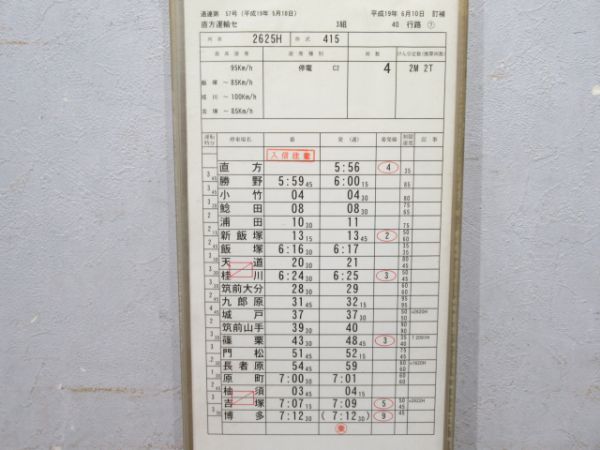 通達第 57号（平成19年 5月18日） 平成19年 6月10日 訂補
直方運輸セ 3組 40 行路 ⑦
列車 2625H 形式 415
最高速度 速度種別 両数 けん引定数(換算両数)
95Km/h 停電 C2 4 2M 2T
～ 85Km/h
桂川 ～100Km/h
～ 85Km/h
運転時分 停車場名 着 発（通） 着発線 制限速度 記事
入信注意
直方 5:56 4 35
勝野 5:59 45 6:00 15 65
小竹 04 04 30 80
鯰田 08 08 30 75 65
浦田 10 30 11 75
新飯塚 13 15 13 45 2
飯塚 6:16 30 6:17
天道 20 30 21
桂川 6:24 30 6:25 3
筑前大分 28 30 29
九郎原 31 45 32 15
城戸 37 37 30
筑前山手 39 30 40
篠栗 43 30 48 45 3
門松 51 45 52 15
長者原 54 45 59
原町 7:00 30 7:01
柚須 03 45 04 15
吉塚 7:07 15 7:09 5
博多 7:12 30 (7:12 30) 9